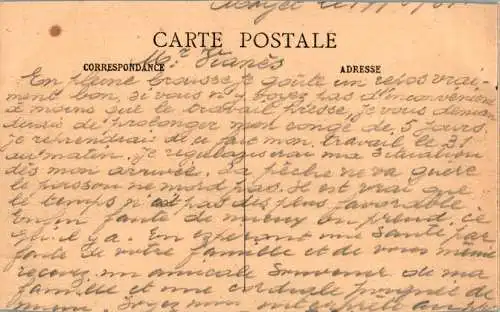 CARTE POSTALE
CORRESPONDANCE
ADRESSE
Mr Vianès
En pleine brousse, je goûte un repos vrai-
ment bon, si vous n'y voyez pas d'inconvénient
à moins que le travail presse, je vous demanderais de prolonger mon congé de 3 jours,
je reprendrai de ce fait mon travail le 31
au matin. je régulariserai ma situation
dès mon arrivée. La pêche ne va guère
le poisson ne mord pas. Il est vrai que
le temps n'est pas des plus favorable
Enfin faute de mieux on prend ce
qu'il y a. En espérant une santé par
faite de votre famille et de vous même
recevez un amicale souvenir de ma
famille et une cordiale poignée de
main. Soyez mon